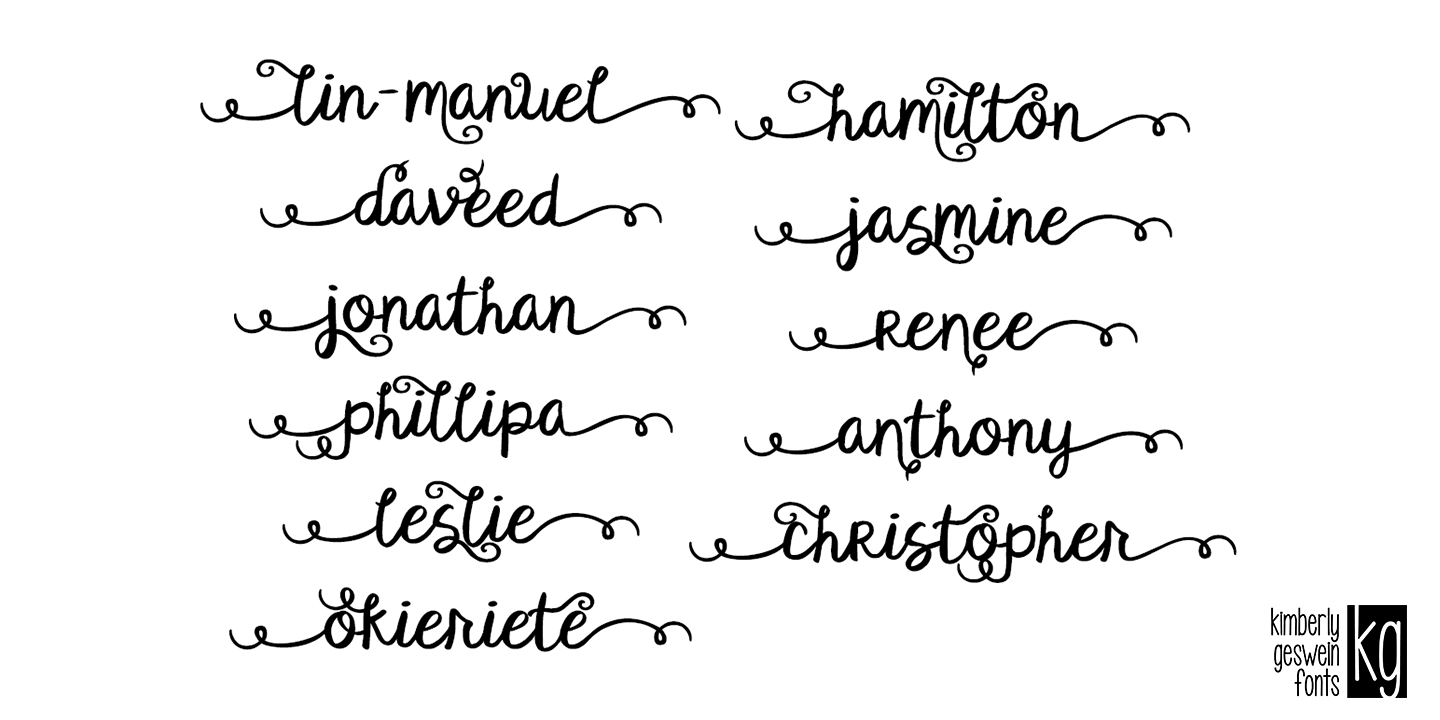 lin-manuel
daveed
jonathan
phillipa
leslie
okieriete
hamilton
jasmine
Renee
anthony
chRistopher
kimberly
geswein
fonts
kg